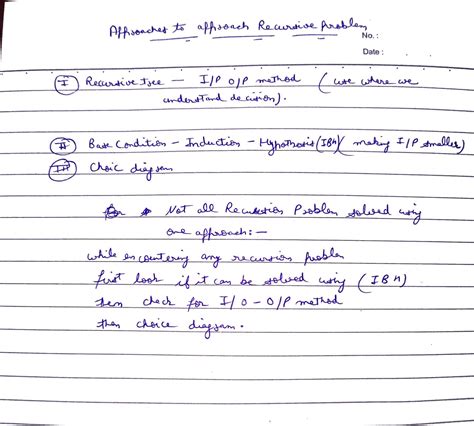 Approaches to approach Recursive Problem
No.:
Date:
I Recursive tree — I/P O/P method (use where we
understand decision).
II Base Condition - Induction - Hypothesis (IBH) (making I/P smaller)
III Choic diagram
Not all Recursion Problem solved using
one approach:—
while encountering any recursion problem
first look if it can be solved using (IBH)
then check for I/O - O/P method
then choice diagram.